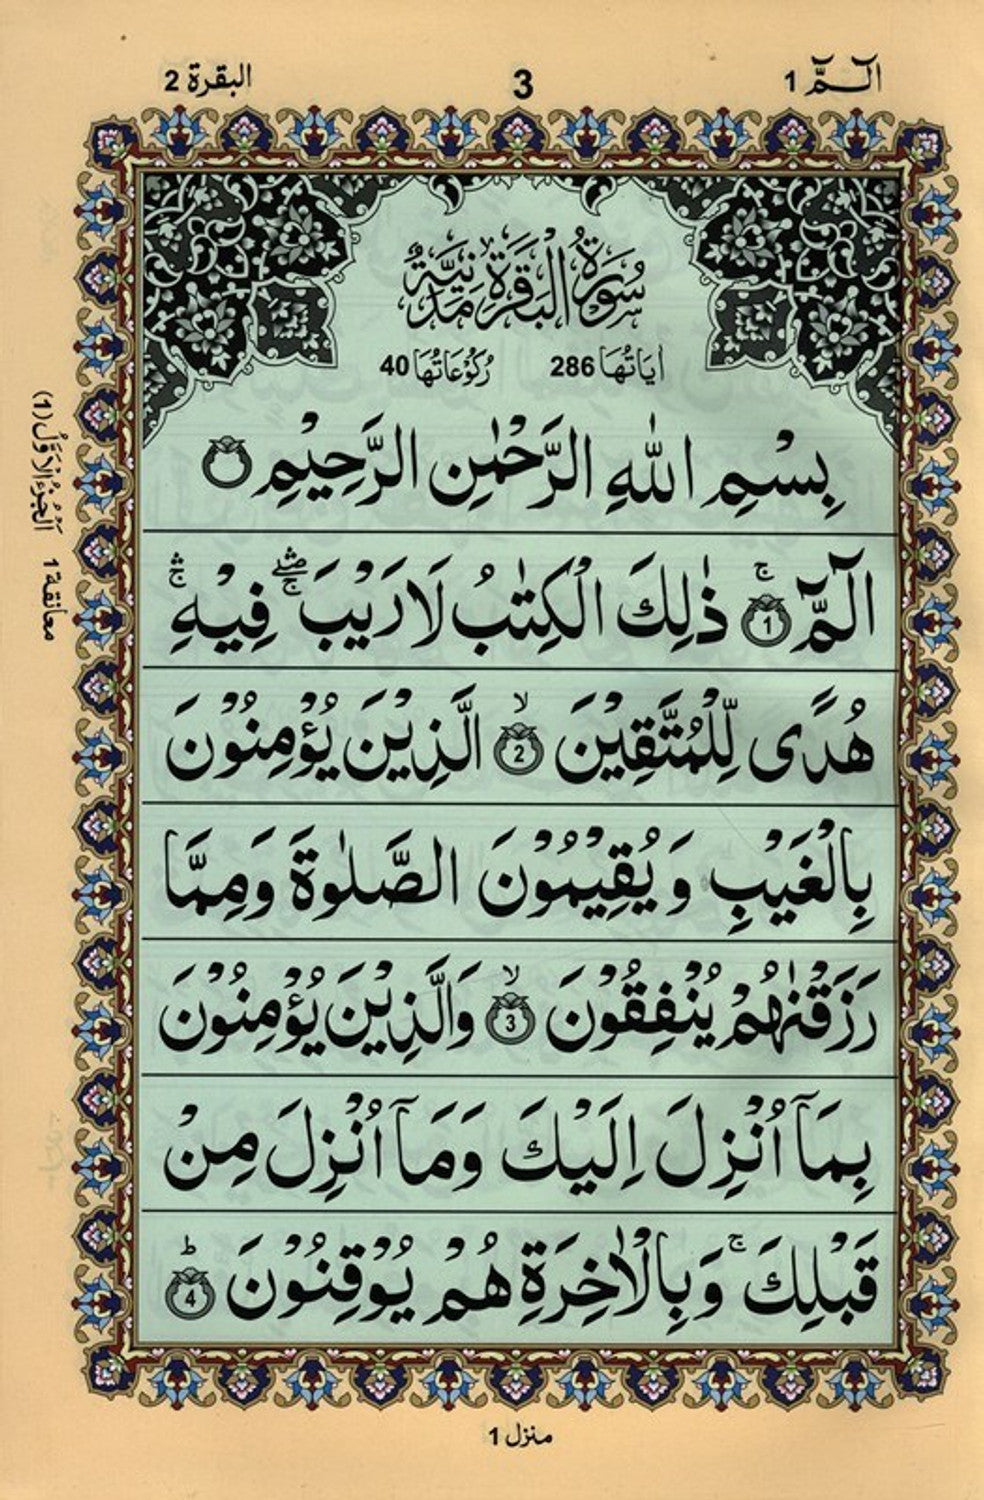 الٓـمّٓ 1
3
البقرة 2
سُوْرَةُ الْبَقَرَةِ مَدَنِيَّةٌ
اٰيَاتُهَا 286 رُكُوْعَاتُهَا 40
بِسْمِ اللّٰهِ الرَّحْمٰنِ الرَّحِيْمِ
الٓمّٓ ۚ 1 ذٰلِكَ الْكِتٰبُ لَا رَيْبَ ۛۖۚ فِيْهِ ۛۚ
هُدًى لِّلْمُتَّقِيْنَ ۙ 2 الَّذِيْنَ يُؤْمِنُوْنَ
بِالْغَيْبِ وَيُقِيْمُوْنَ الصَّلٰوةَ وَمِمَّا
رَزَقْنٰهُمْ يُنْفِقُوْنَ ۙ 3 وَالَّذِيْنَ يُؤْمِنُوْنَ
بِمَآ اُنْزِلَ اِلَيْكَ وَمَآ اُنْزِلَ مِنْ
قَبْلِكَ ۚ وَبِالْاٰخِرَةِ هُمْ يُوْقِنُوْنَ ؕ 4
اَلْجُزْءُ الْاَوَّلُ (1)
معانقة 1
منزل 1